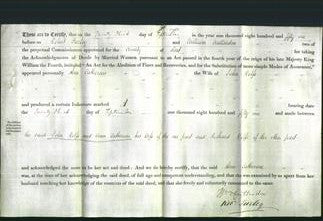 These are to Certify, that on the Twenty third day of September in the year one thousand eight hundred and fifty one
before us and William two of
the perpetual Commissioners appointed for the County of Kent for taking
the Acknowledgments of Deeds by Married Women pursuant to an Act passed in the fourth year of the reign of his late Majesty King
William the Fourth, intituled "An Act for the Abolition of Fines and Recoveries, and for the Substitution of more simple Modes of Assurance,"
appeared personally Ann Catherine the Wife of John
and produced a certain Indenture marked bearing date
the Twenty third day of September one thousand eight hundred and fifty one and made between
the said John and Ann Catherine his Wife of the one part and Richard of the other part
and acknowledged the same to be her act and deed. And we do hereby certify, that the said Ann Catherine
was, at the time of her acknowledging the said deed, of full age and competent understanding, and that she was examined by us apart from her
husband touching her knowledge of the contents of the said deed, and that she freely and voluntarily consented to the same.